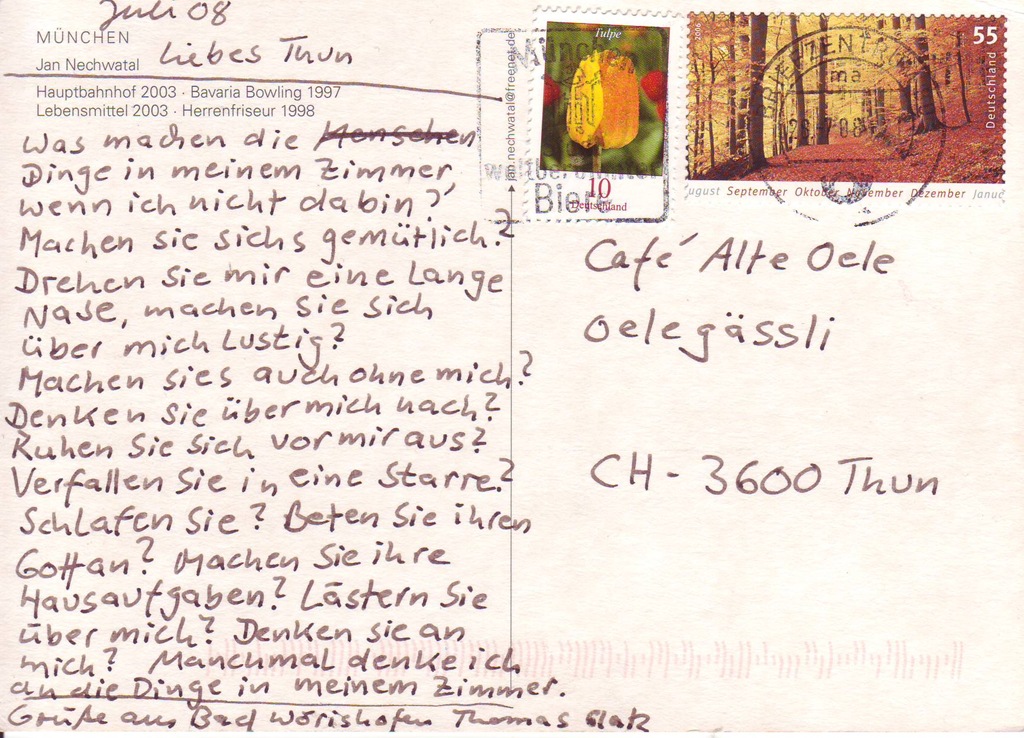 Juli 08
MÜNCHEN
Liebes Thun
Jan Nechwatal
Hauptbahnhof 2003 · Bavaria Bowling 1997
Lebensmittel 2003 · Herrenfriseur 1998
was machen die Menschen
Dinge in meinem Zimmer
wenn ich nicht da bin?
Machen sie sichs gemütlich?
Drehen Sie mir eine Lange
Nase, machen Sie sich
über mich Lustig?
Machen sies auch ohne mich?
Denken Sie über mich nach?
Ruhen Sie sich vor mir aus?
Verfallen Sie in eine Starre?
Schlafen Sie? Beten Sie ihren
Gott an? Machen Sie ihre
Hausaufgaben? Lästern Sie
über mich? Denken sie an
mich? Manchmal denke ich
an die Dinge in meinem Zimmer.
Grüße aus Bad Wörishofen Thomas Glatz
jan.nechwatal@freenet.de
Tulpe
10
Deutschland
München
Bier
55
Deutschland
2006
BRIEFZENTRUM
ma
August September Oktober November Dezember Janua
Café Alte Oele
Oelegässli
CH - 3600 Thun